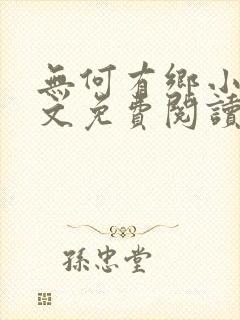 無何有鄉小
文免費閱讀
孫忠堂